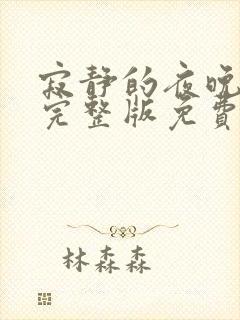 寂静的夜晚
完整版免費
林森森